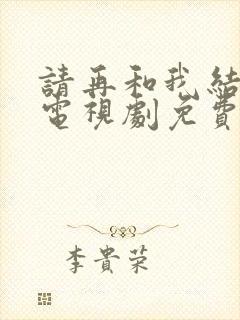 請再和我結
電視劇免費
李貴荣